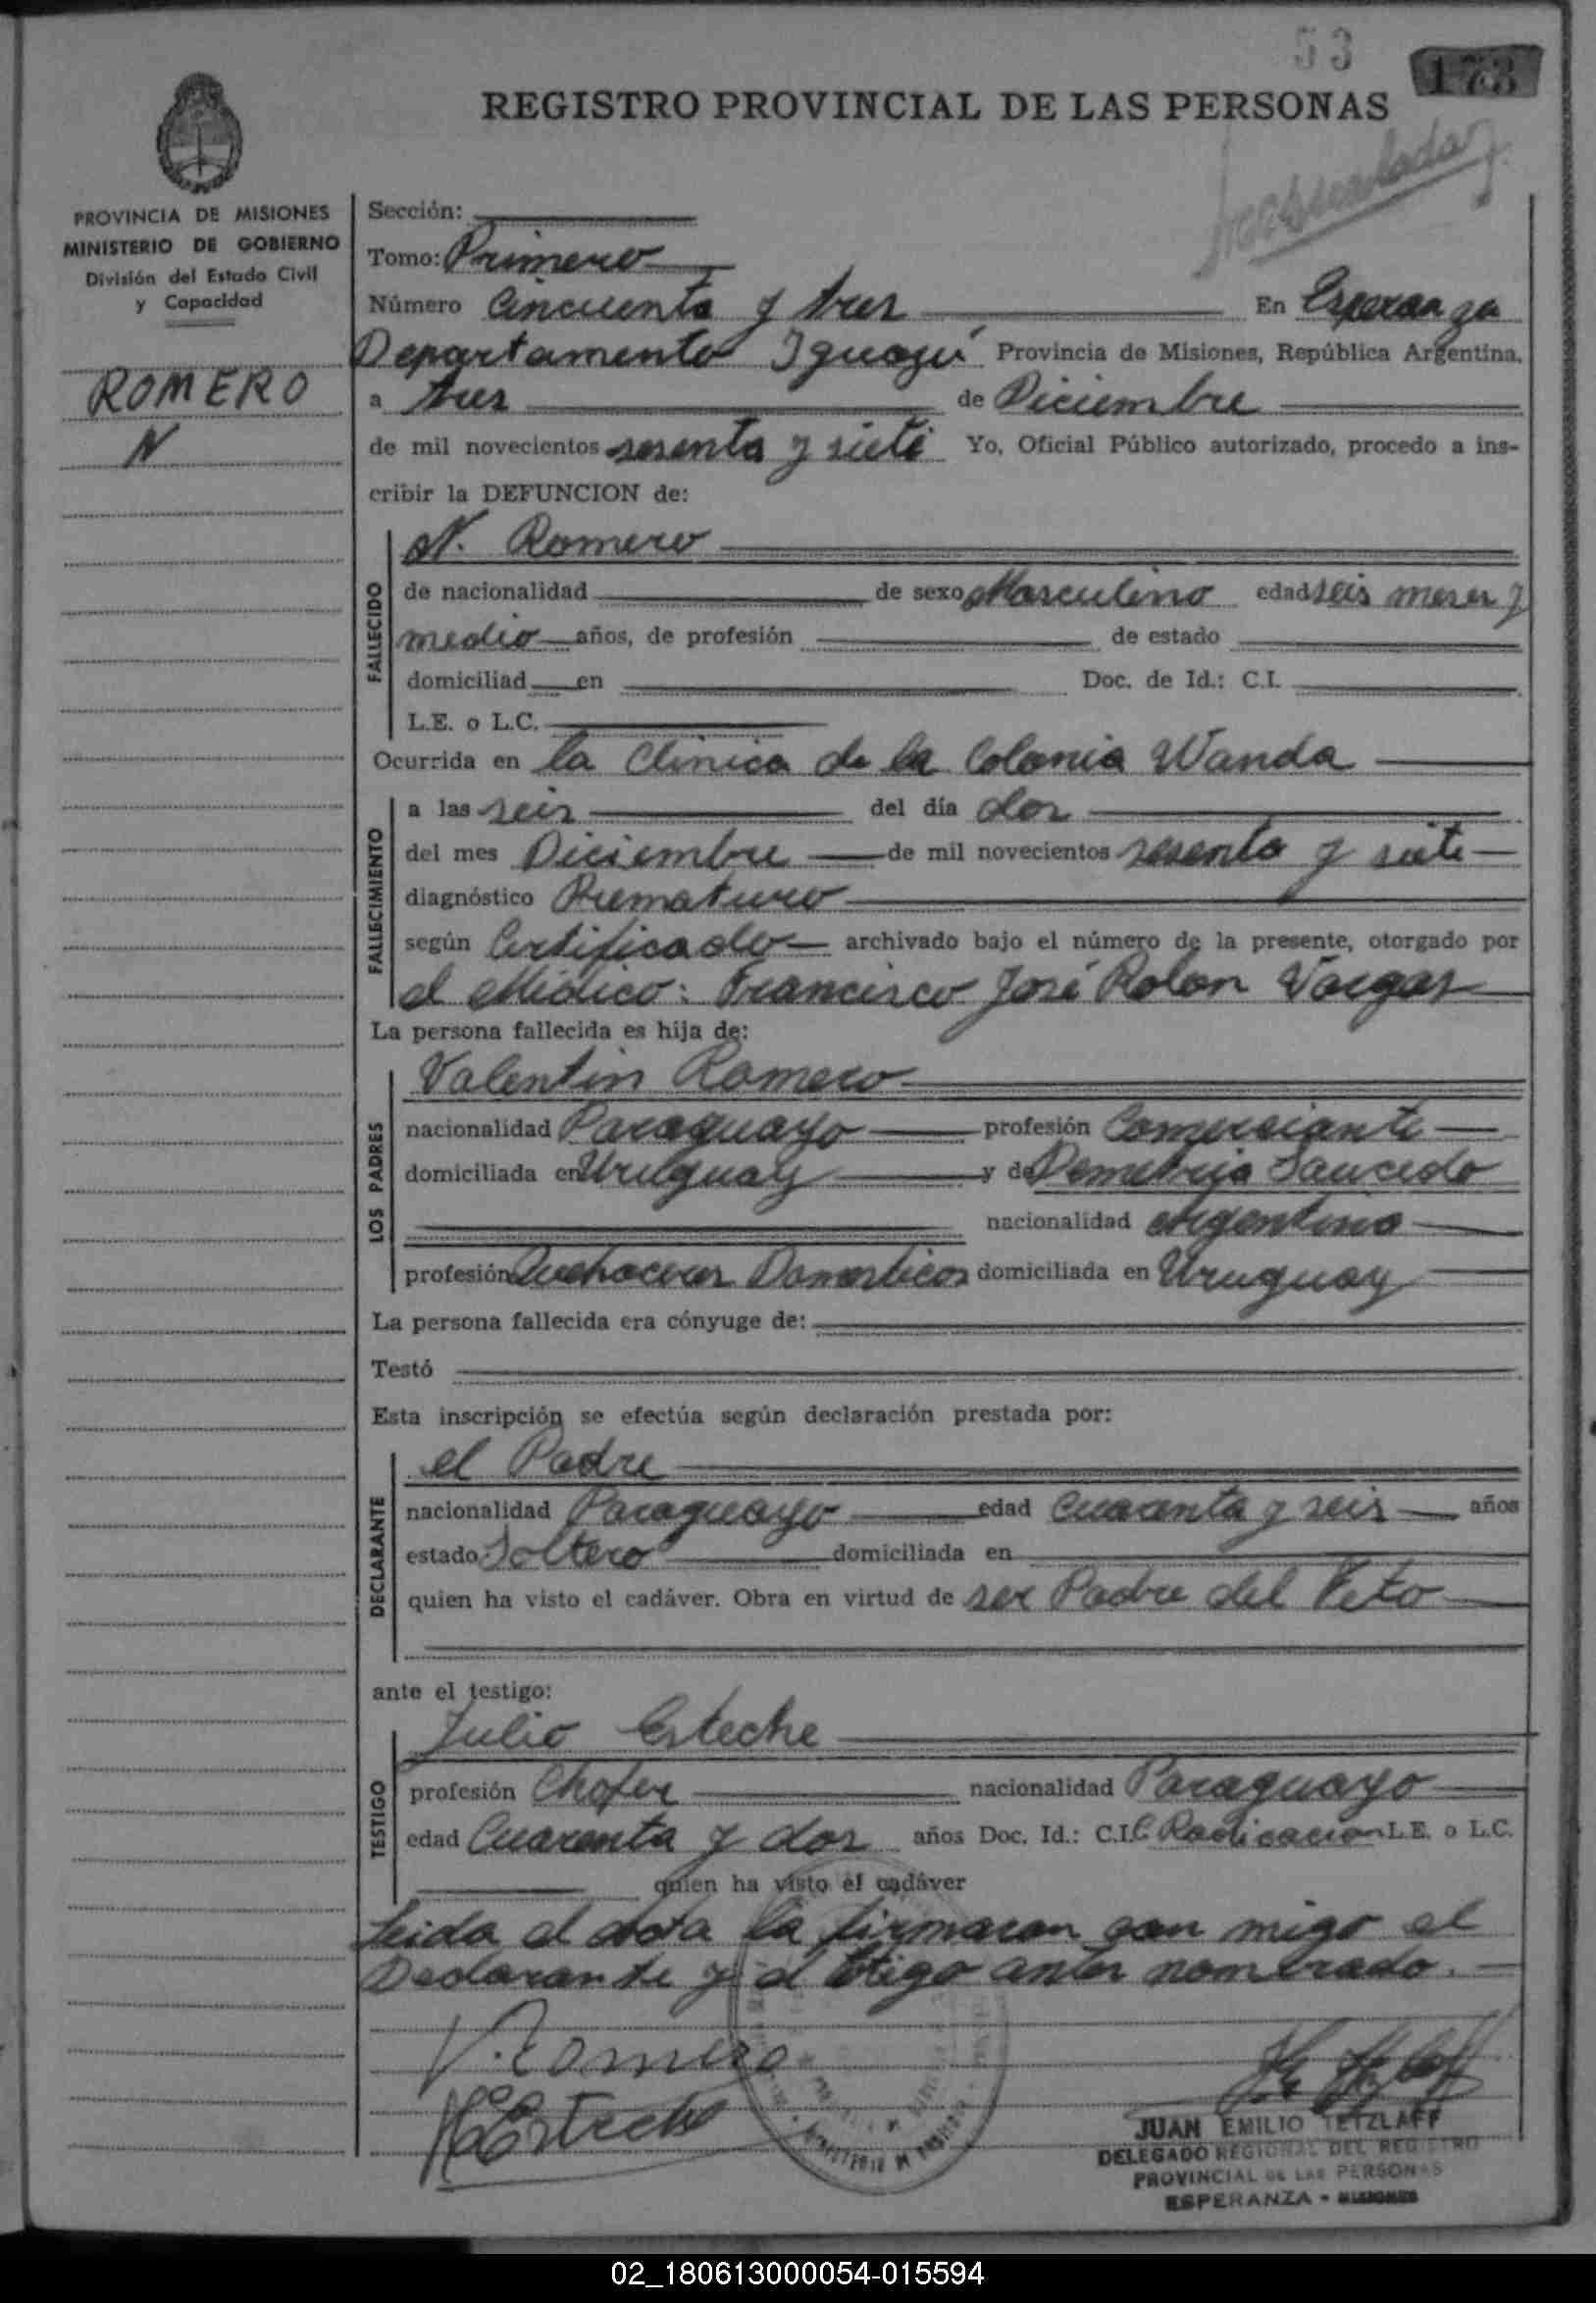 53
173
REGISTRO PROVINCIAL DE LAS PERSONAS
PROVINCIA DE MISIONES
MINISTERIO DE GOBIERNO
División del Estado Civil
y Capacidad
ROMERO
N
Sección:
Tomo: Primero
Número Cincuenta y tres En Esperanza
Departamento Iguazú Provincia de Misiones, República Argentina,
a tres de Diciembre
de mil novecientos sesenta y siete Yo, Oficial Público autorizado, procedo a ins-
cribir la DEFUNCION de:
N. Romero
FALLECIDO
de nacionalidad de sexo Masculino edad seis meses y
medio años, de profesión de estado
domiciliad en Doc. de Id.: C.I.
L.E. o L.C.
Ocurrida en la Clinica de la Colonia Wanda
FALLECIMIENTO
a las seis del día dos
del mes Diciembre de mil novecientos sesenta y siete
diagnóstico Prematuro
según Certificado archivado bajo el número de la presente, otorgado por
el Médico: Francisco José Rolon Vargas
La persona fallecida es hija de:
LOS PADRES
Valentin Romero
nacionalidad Paraguayo profesión Comerciante
domiciliada en Uruguay y de Demetria Saucedo
nacionalidad Argentina
profesión Quehaceres Domesticos domiciliada en Uruguay
La persona fallecida era cónyuge de:
Testó
Esta inscripción se efectúa según declaración prestada por:
DECLARANTE
el Padre
nacionalidad Paraguayo edad Cuarenta y seis años
estado Soltero domiciliada en
quien ha visto el cadáver. Obra en virtud de ser Padre del Feto
ante el testigo:
TESTIGO
Julio Esteche
profesión Chofer nacionalidad Paraguayo
edad Cuarenta y dos años Doc. Id.: C.I. C Radicacion L.E. o L.C.
quien ha visto el cadáver
Leida el acta la firmaron con migo el
Declarante y el testigo antes nombrado.
V. Romero
JEsteche
JUAN EMILIO TETZLAFF
DELEGADO REGIONAL DEL REGISTRO
PROVINCIAL DE LAS PERSONAS
ESPERANZA - MISIONES
02_180613000054-015594